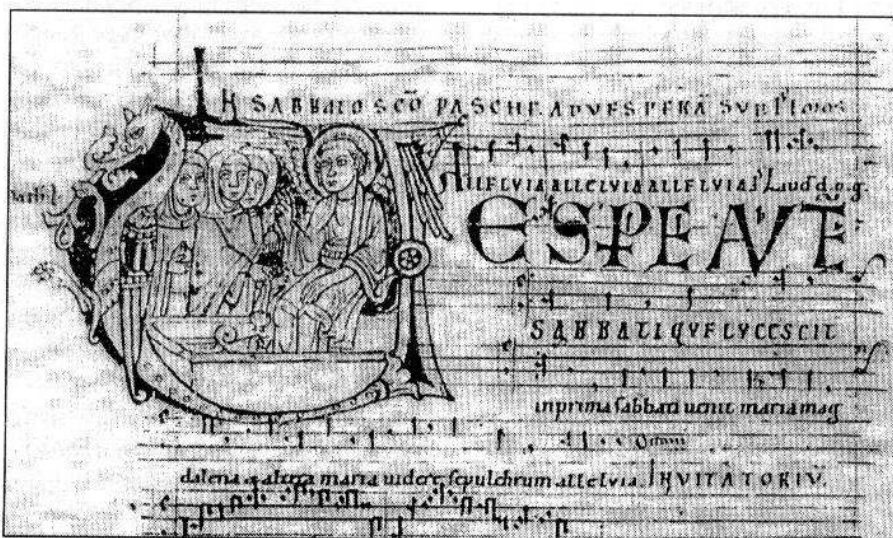 IN SABBATO SCŌ PASCHE. AD VESPERĀ SUP
ALLELVIA ALLELVIA ALLELVIA
ESPE AUTĒ
SABBATI QVE LVCESCIT
in prima sabbati uenit maria mag
dalena et altera maria uidere sepulchrum alleluia. INVITATORIV̄.